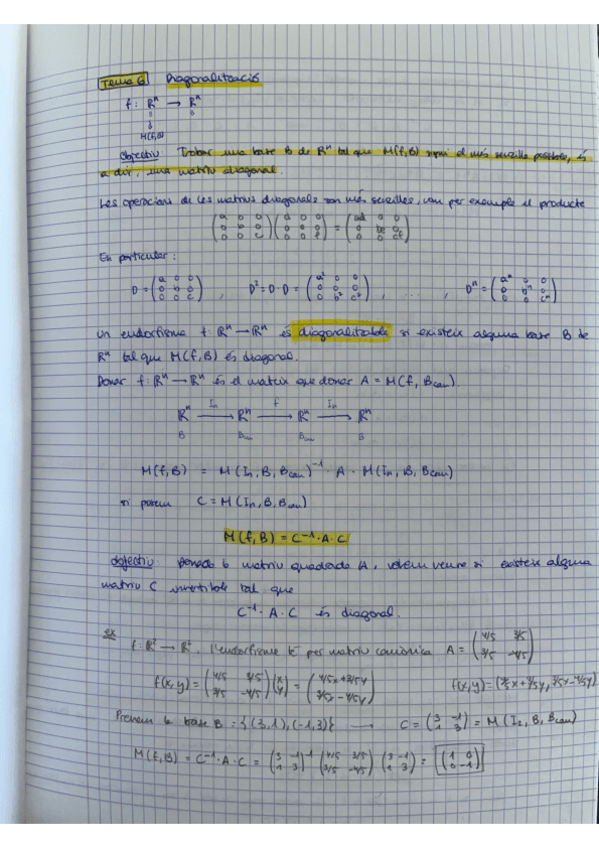 Tema 6 Diagonalització
f: Rⁿ → Rⁿ
B B
M(f,B)
Objectiu: Trobar una base B de Rⁿ tal que M(f,B) sigui el més senzilla possible, és
a dir, una matriu diagonal.
Les operacions de les matrius diagonals son més senzilles, com per exemple el producte
(a 0 0; 0 b 0; 0 0 c) (d 0 0; 0 e 0; 0 0 f) = (ad 0 0; 0 be 0; 0 0 cf)
En particular:
D = (a 0 0; 0 b 0; 0 0 c) , D² = D·D = (a² 0 0; 0 b² 0; 0 0 c²) , ... , Dⁿ = (aⁿ 0 0; 0 bⁿ 0; 0 0 cⁿ)
Un endorfisme f: Rⁿ → Rⁿ és diagonalitzable si existeix alguna base B de
Rⁿ tal que M(f,B) és diagonal.
Donar f: Rⁿ → Rⁿ és el mateix que donar A = M(f, Bcan).
Rⁿ —In→ Rⁿ —f→ Rⁿ —In→ Rⁿ
B Bcan Bcan B
M(f,B) = M(In, B, Bcan)⁻¹ · A · M(In, B, Bcan)
si posem C = M(In, B, Bcan)
M(f,B) = C⁻¹·A·C
Objectiu: donada la matriu quadrada A, volem veure si existeix alguna
matriu C invertible tal que
C⁻¹ · A · C és diagonal.
Ex
f: R² → R², l'endorfisme té per matriu canònica A = (4/5 3/5; 3/5 -4/5)
f(x,y) = (4/5 3/5; 3/5 -4/5)(x; y) = (4/5x+3/5y; 3/5x-4/5y) f(x,y) = (4/5x+3/5y, 3/5x-4/5y)
Prenem la base B = {(3,1),(-1,3)} → C = (3 -1; 1 3) = M(I₂, B, Bcan)
M(f,B) = C⁻¹·A·C = (3 -1; 1 3)⁻¹ (4/5 3/5; 3/5 -4/5) (3 -1; 1 3) = (1 0; 0 -1)